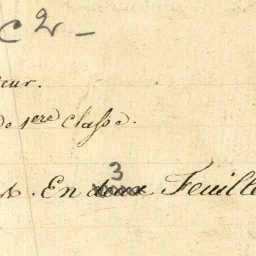 C 2 -
eur.
de 1ere Classe.
. En deux 3 Feuille